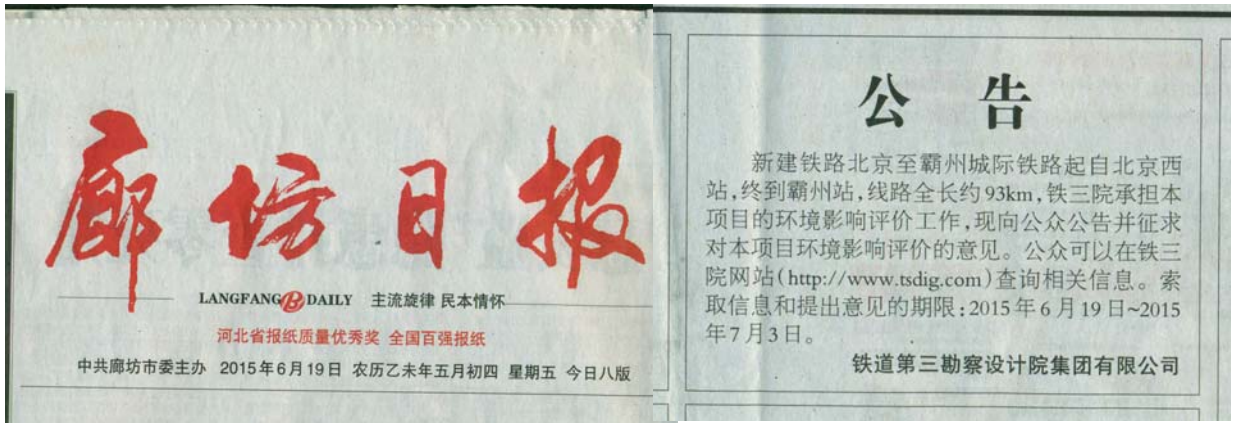 廊坊日报
LANGFANG DAILY 主流旋律 民本情怀
河北省报纸质量优秀奖 全国百强报纸
中共廊坊市委主办 2015年6月19日 农历乙未年五月初四 星期五 今日八版
公告
新建铁路北京至霸州城际铁路起自北京西
站,终到霸州站,线路全长约93km,铁三院承担本
项目的环境影响评价工作,现向公众公告并征求
对本项目环境影响评价的意见。公众可以在铁三
院网站(http://www.tsdig.com)查询相关信息。索
取信息和提出意见的期限:2015年6月19日~2015
年7月3日。
铁道第三勘察设计院集团有限公司